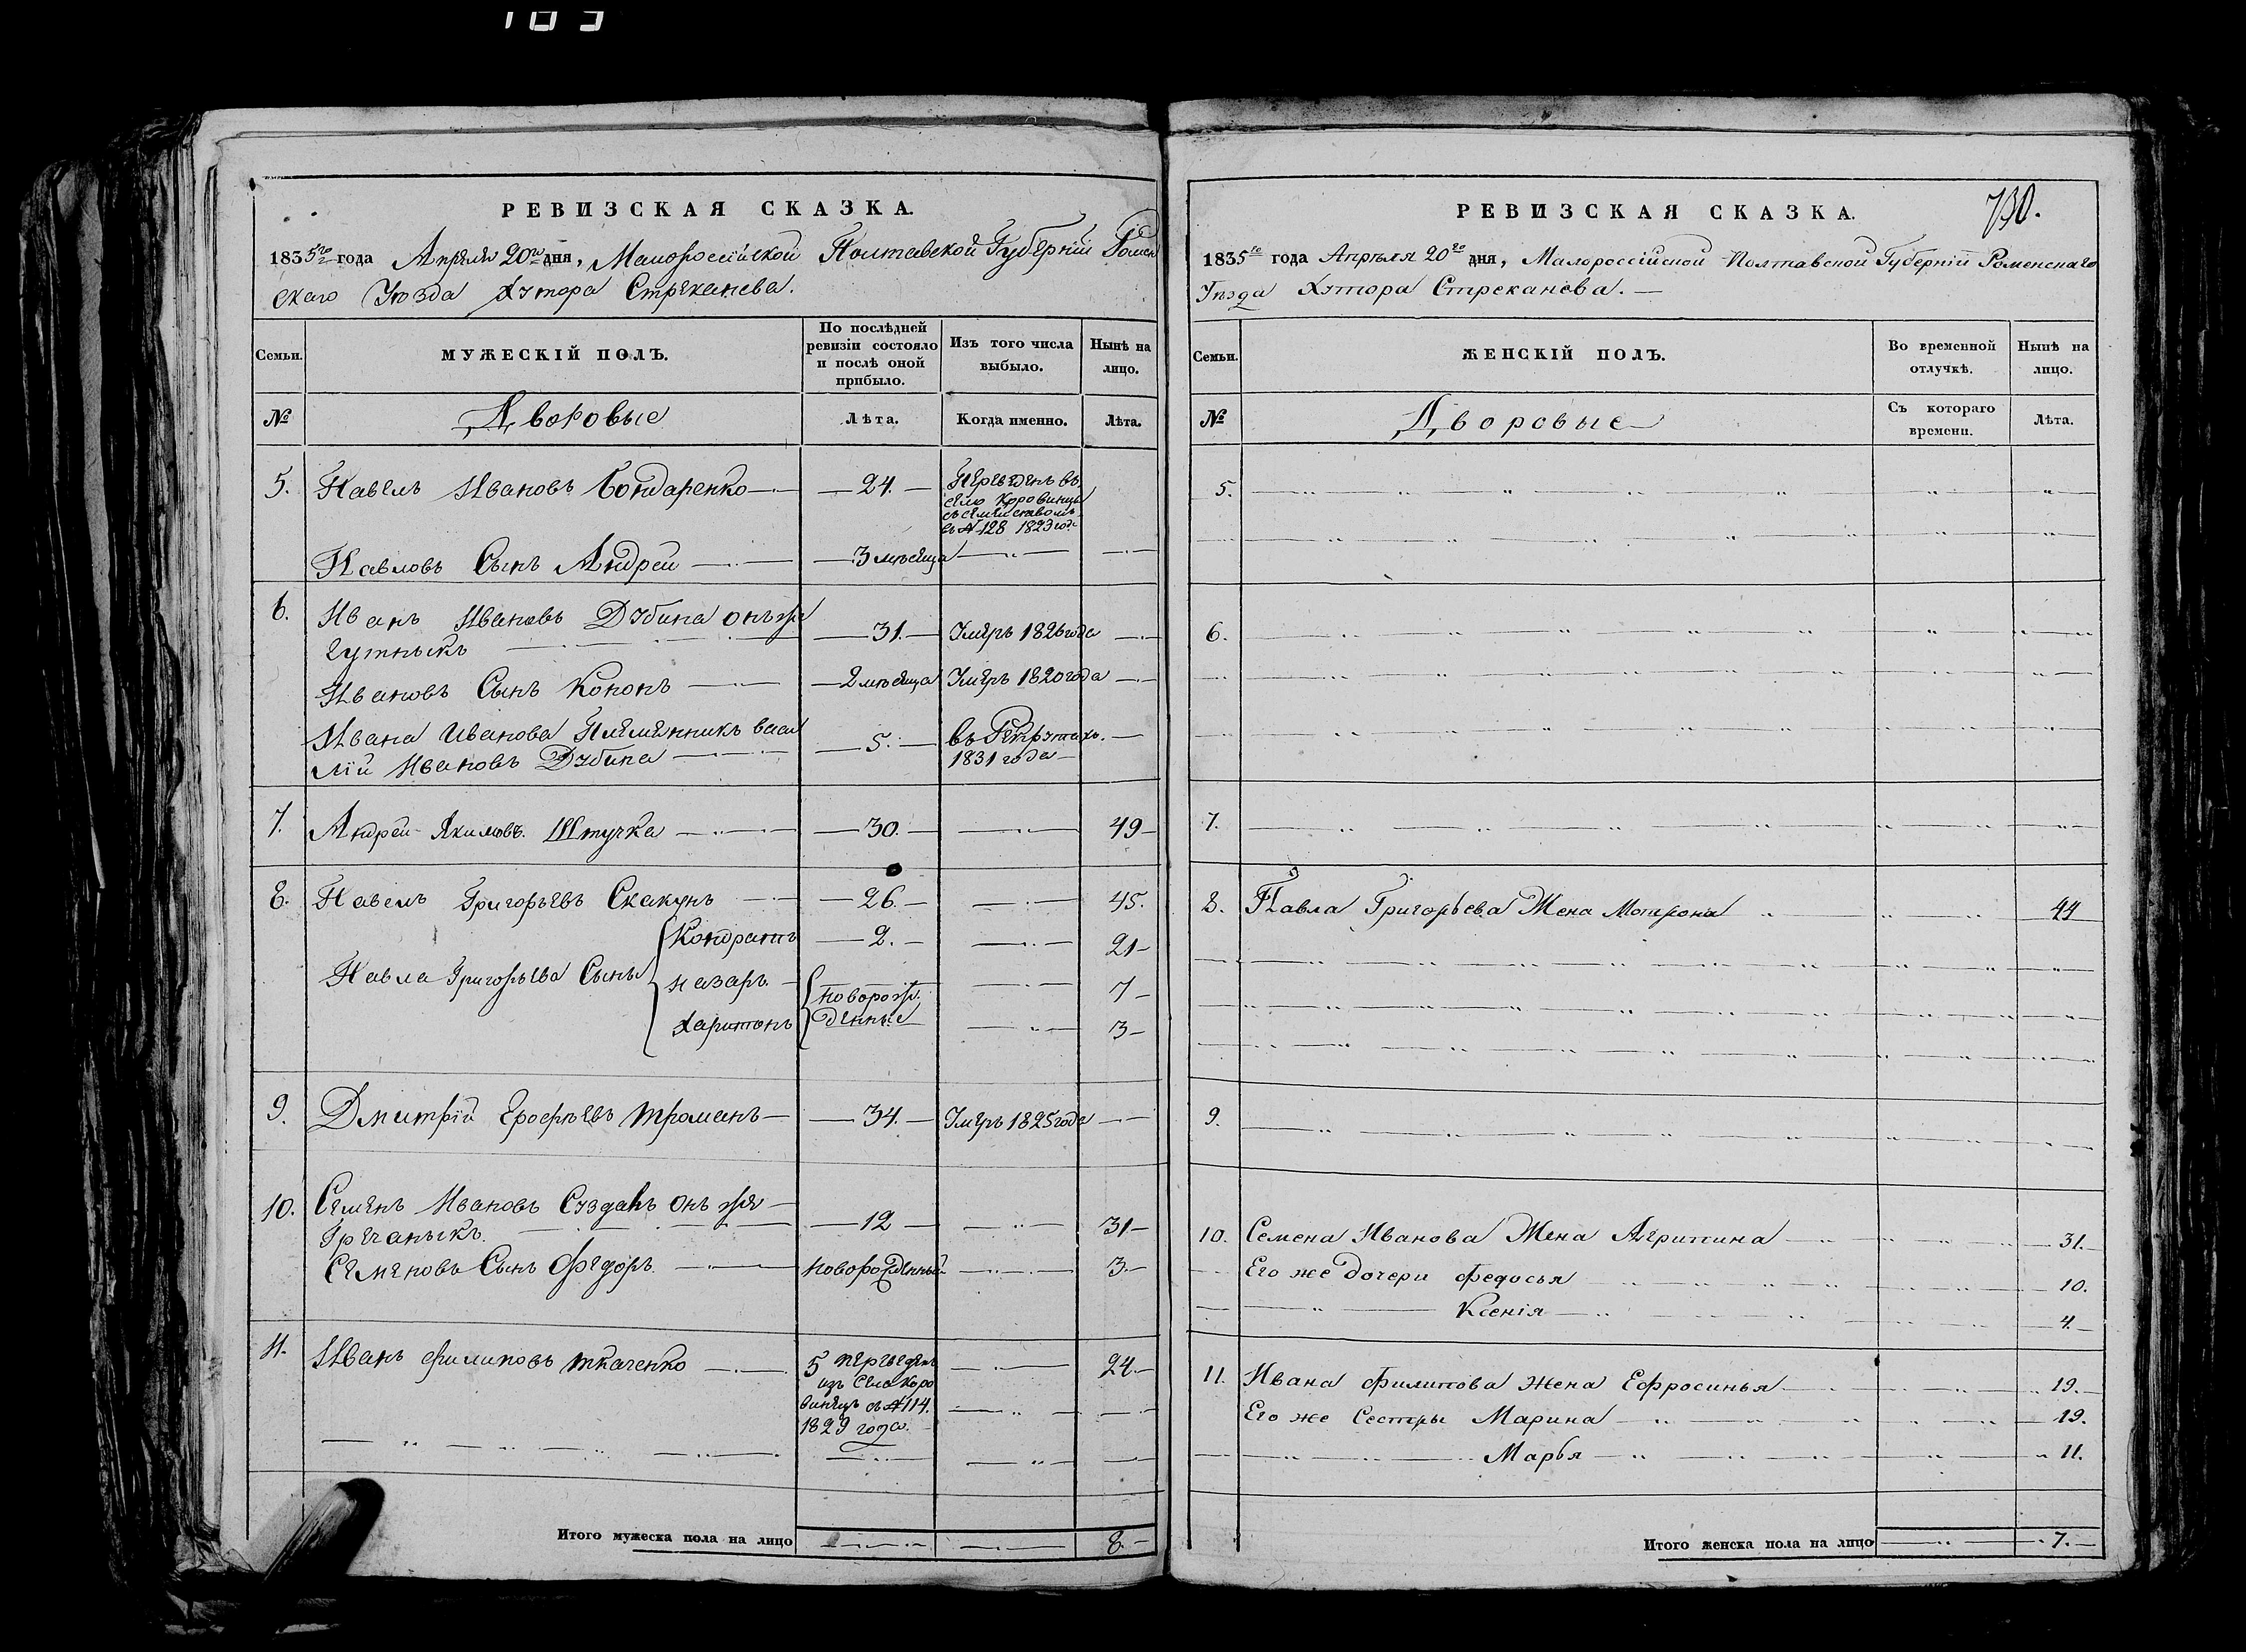 183
РЕВИЗСКАЯ СКАЗКА.
1835го года Апреля 20го дня, Малороссійской Полтавской Губерніи Ромен
скаго Уѣзда Хутора Стреканева.
Семьи.
МУЖЕСКІЙ ПОЛЪ.
По послѣдней ревизіи состояло и послѣ оной прибыло.
Изъ того числа выбыло.
Нынѣ на лицо.
№
Дворовые
Лѣта.
Когда именно.
Лѣта.
5. Павелъ Ивановъ Бондаренко 24. Переведенъ въ
село Коровинцы
съ семействомъ
въ № 128 1823 год
Павловъ Сынъ Андрей 3 мѣсяца
6. Иванъ Ивановъ Дубина онъ же 31. Умеръ 1826 года
Гутныкъ
Ивановъ Сынъ Кононъ 2 мѣсяца Умеръ 1820 года
Ивана Иванова Племянникъ Васи 5. въ Рекрутахъ.
лій Ивановъ Дубина 1831 года
7. Андрей Якимовъ Штучка 30. 49
8. Павелъ Григорьевъ Скакунъ 26. 45.
Кондратъ 2. 21
Павла Григорьева Сыны Назаръ. новорож 7
Харитонъ денные 3
9. Дмитрій Ерофѣевъ Троманъ 34. Умеръ 1825 года
10. Семенъ Ивановъ Суздаль онъ же 12 31
Гречаныкъ.
Семеновъ Сынъ Федоръ новорожденный 3
11. Иванъ Филиповъ Ткаченко 5 переведенъ 24
изъ Села Коро
винецъ съ № 114.
1829 года.
Итого мужеска пола на лицо 8.
РЕВИЗСКАЯ СКАЗКА.
730.
1835го года Апрѣля 20го дня, Малороссійской Полтавской Губерніи Роменскаго
Уѣзда Хутора Стреканова.
Семьи.
ЖЕНСКІЙ ПОЛЪ.
Во временной отлучкѣ.
Нынѣ на лицо.
№
Дворовые
Съ котораго времени.
Лѣта.
5.
6.
7.
8. Павла Григорьева Жена Мотрона 44
9.
10. Семена Иванова Жена Агрипина 31.
Его же дочери Федосья 10.
Ксенія 4.
11. Ивана Филипова Жена Ефросинья 19.
Его же Сестры Марина 19.
Марья 11.
Итого женска пола на лицо 7.